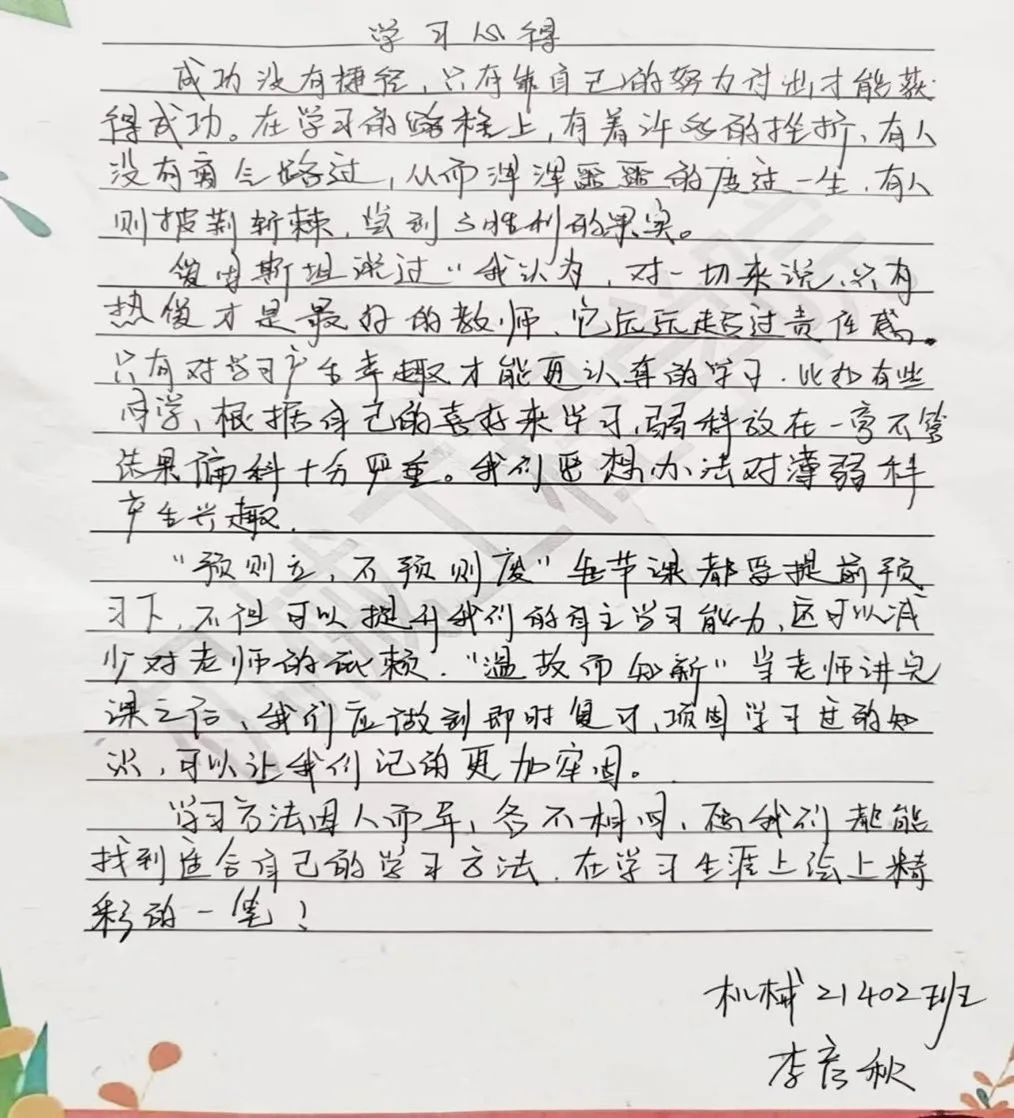 学习心得
成功没有捷径，只有靠自己的努力付出才能获
得成功。在学习的路程上，有着许多的挫折，有人
没有勇气略过，从而浑浑噩噩的度过一生，有人
则披荆斩棘，尝到了胜利的果实。
爱因斯坦说过“我认为，对一切来说，只有
热爱才是最好的教师，它远远超过责任感。
只有对学习产生幸趣才能更认真的学习．比如有些
同学，根据自己的喜好来学习，弱科放在一旁不管
结果偏科十分严重。我们要想办法对薄弱科
产生兴趣．
“预则立，不预则废”每节课都要提前预
习下，不但可以提升我们的自主学习能力，还可以减
少对老师的依赖．“温故而知新”当老师讲完
课之后、我们应做到即时复习，巩固学习过的知
识，可以让我们记的更加牢固。
学习方法因人而异，各不相同，愿我们都能
找到适合自己的学习方法．在学习生涯上绘上精
彩的一笔！
机械21402班
李彦秋
机械工程学院